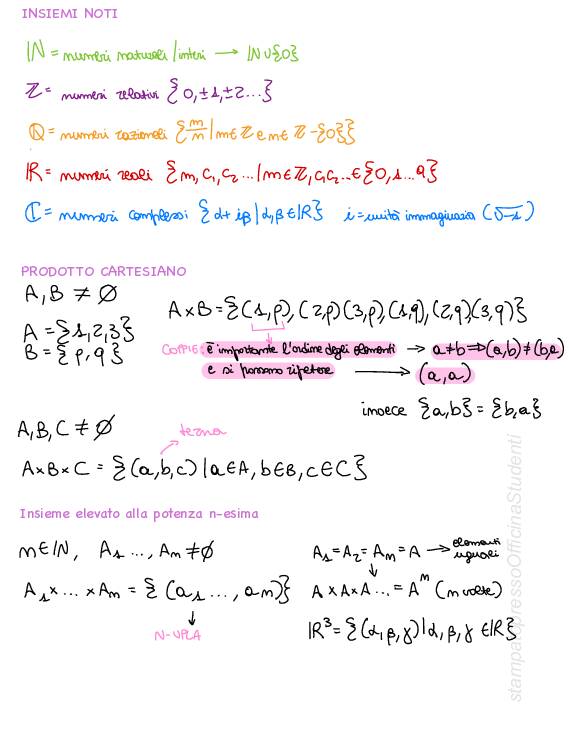 INSIEMI NOTI
ℕ = numeri naturali / interi → ℕ ∪ {0}
ℤ = numeri relativi {0, ±1, ±2 ...}
ℚ = numeri razionali {m/n | m ∈ ℤ e n ∈ ℤ - {0}}
ℝ = numeri reali {m, c₁ c₂ ... | m ∈ ℤ, c₁ c₂ ... ∈ {0, 1 ... 9}
ℂ = numeri complessi {α + iβ | α, β ∈ ℝ} i = unità immaginaria (√-1)
PRODOTTO CARTESIANO
A, B ≠ ∅
A = {1, 2, 3}
B = {p, q}
A × B = {(1, p), (2, p) (3, p), (1, q), (2, q), (3, q)}
COPPIE: è importante l'ordine degli elementi → a ≠ b ⇒ (a, b) ≠ (b, a)
e si possono ripetere → (a, a)
invece {a, b} = {b, a}
A, B, C ≠ ∅
terna
A × B × C = {(a, b, c) | a ∈ A, b ∈ B, c ∈ C}
Insieme elevato alla potenza n-esima
n ∈ ℕ, A₁ ..., Aₙ ≠ ∅
A₁ × ... × Aₙ = {(a₁ ..., an)}
N-UPLA
A₁ = A₂ = Aₙ = A → elementi uguali
A × A × A ... = Aⁿ (n volte)
ℝ³ = {(α, β, γ) | α, β, γ ∈ ℝ}
stampato presso Officina Studenti